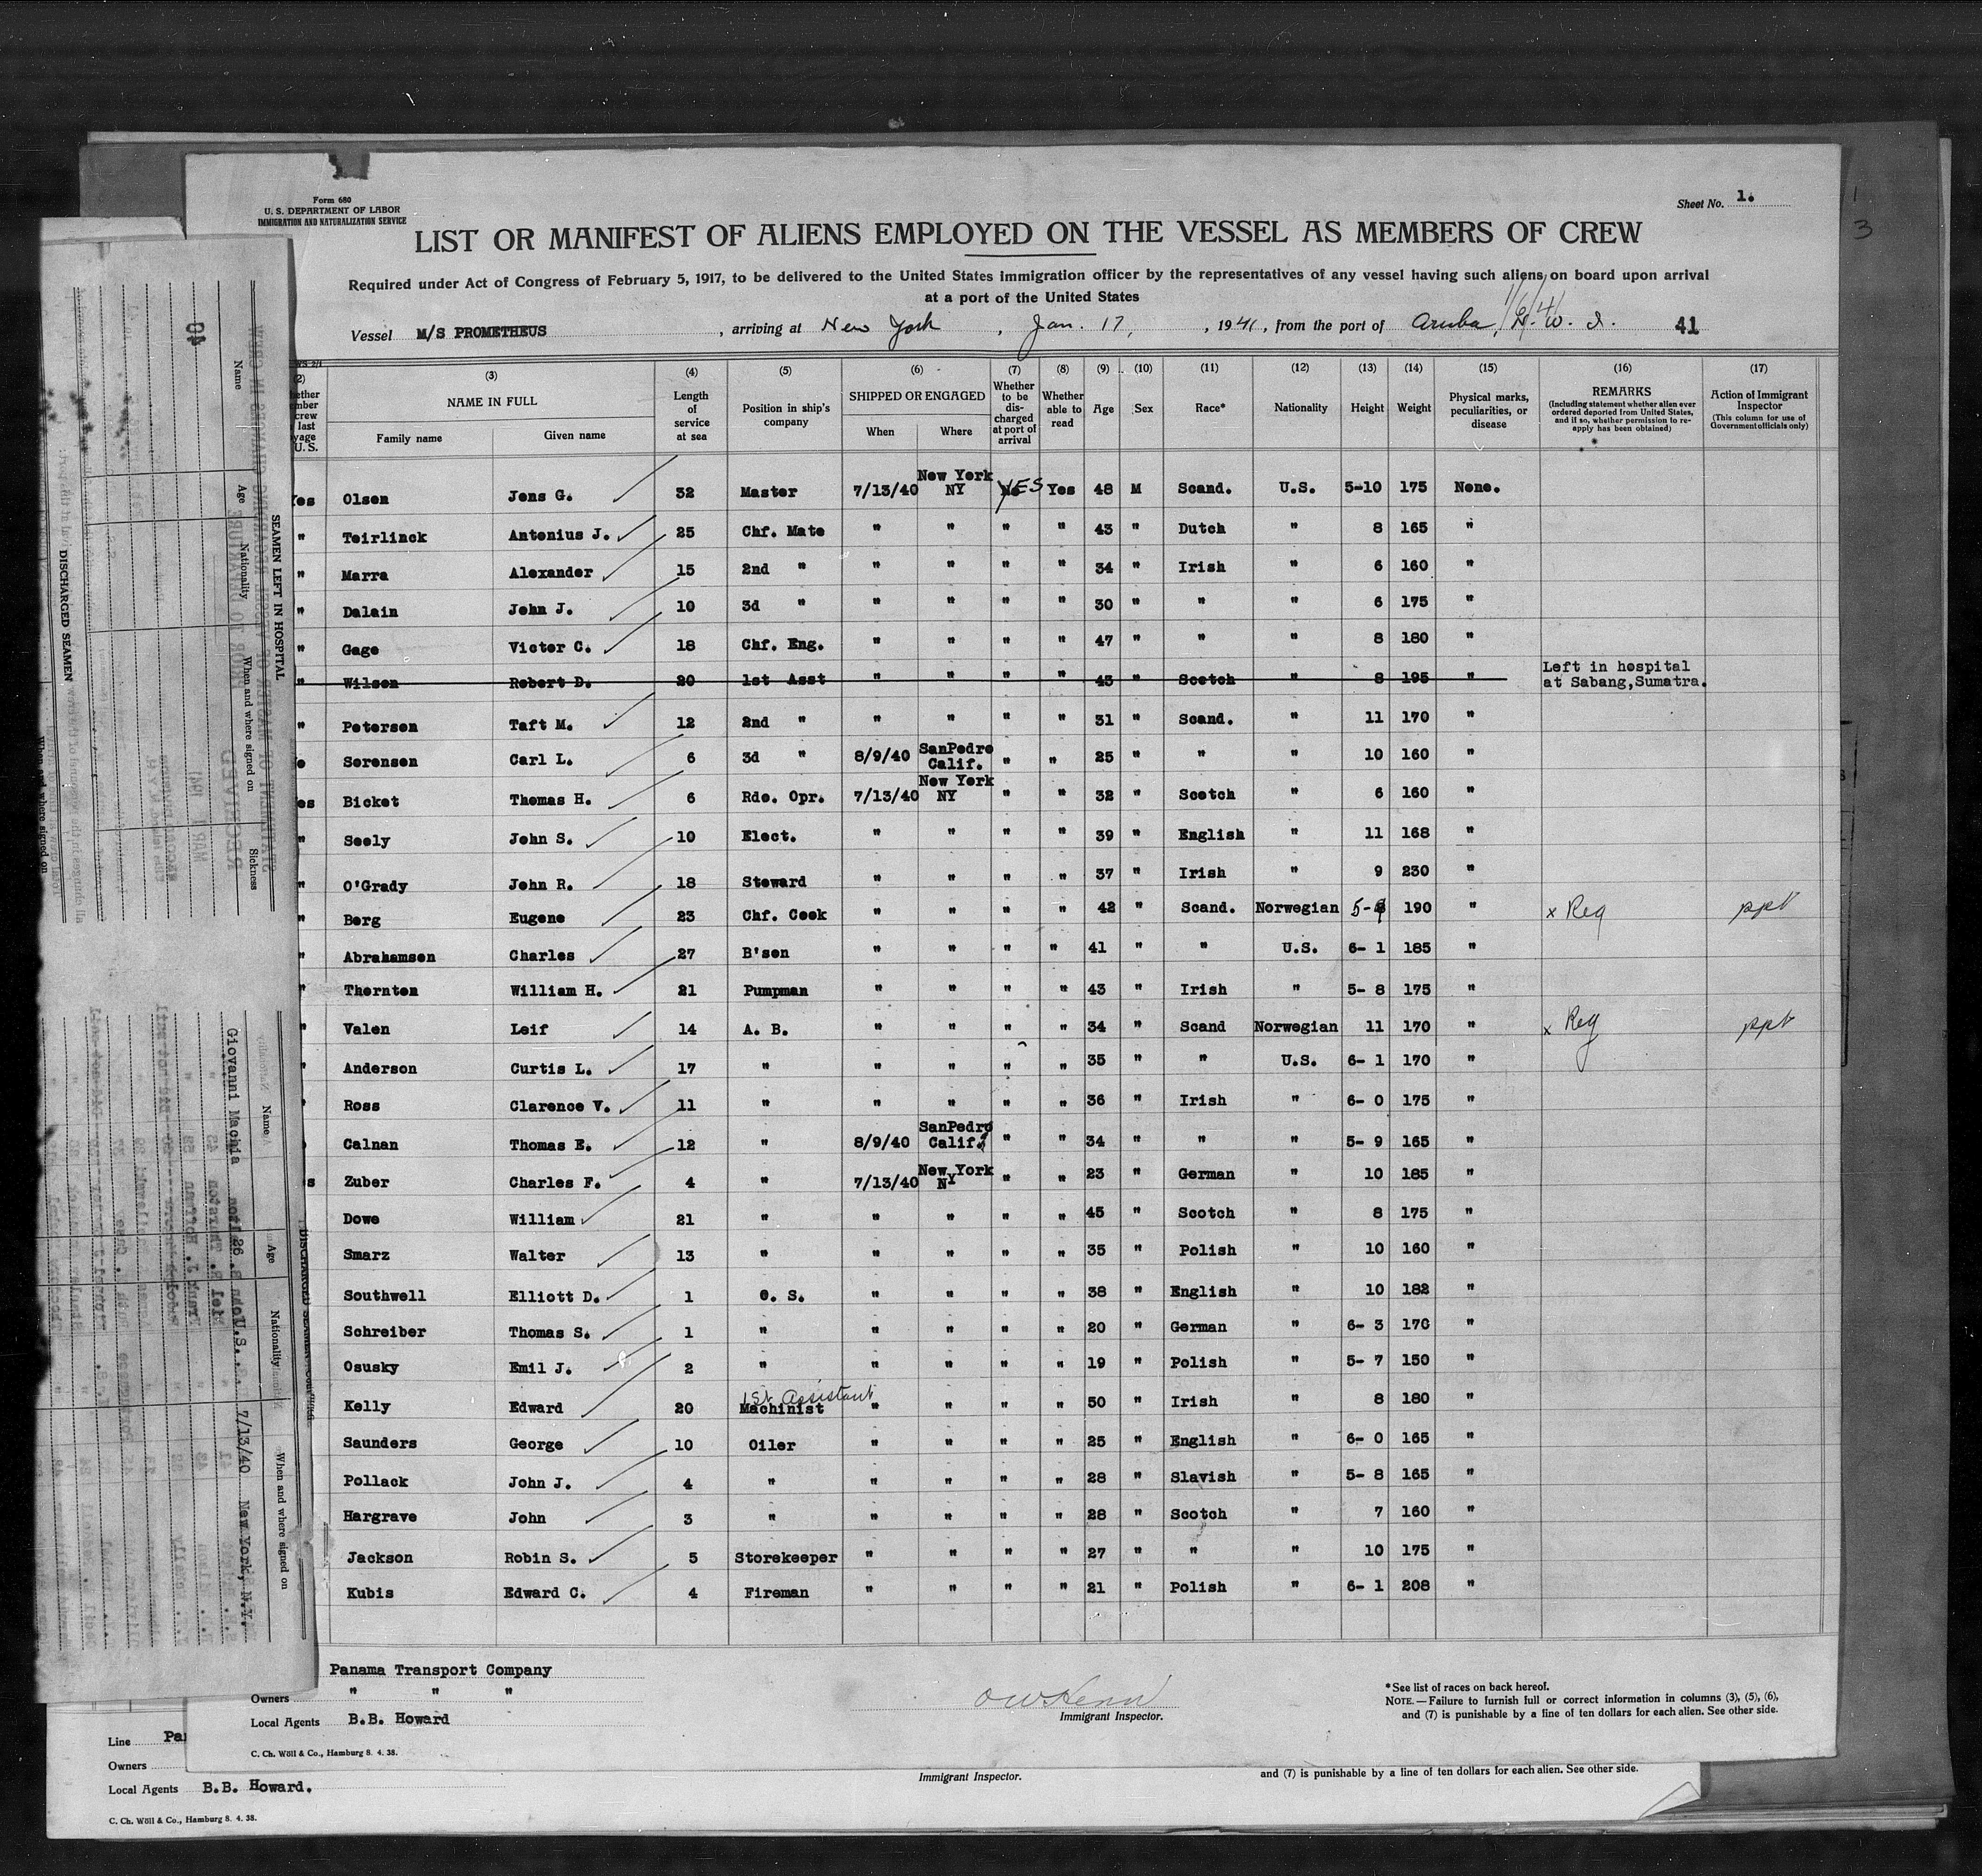 Form 680
U. S. DEPARTMENT OF LABOR
IMMIGRATION AND NATURALIZATION SERVICE
Sheet No. 1.
LIST OR MANIFEST OF ALIENS EMPLOYED ON THE VESSEL AS MEMBERS OF CREW
Required under Act of Congress of February 5, 1917, to be delivered to the United States immigration officer by the representatives of any vessel having such aliens on board upon arrival
at a port of the United States
Vessel M/S PROMETHEUS, arriving at New York, Jan. 17, 1941, from the port of Aruba, N.W.I. 41
(2) (3) (4) (5) (6) (7) (8) (9) (10) (11) (12) (13) (14) (15) (16) (17)
NAME IN FULL Family name Given name Length of service at sea Position in ship's company SHIPPED OR ENGAGED When Where Whether to be discharged at port of arrival Whether able to read Age Sex Race* Nationality Height Weight Physical marks, peculiarities, or disease REMARKS (Including statement whether alien ever ordered deported from United States, and if so, whether permission to reapply has been obtained) Action of Immigrant Inspector (This column for use of Government officials only)
Yes Olsen Jens G. 32 Master 7/13/40 New York NY No YES Yes 48 M Scand. U.S. 5-10 175 None.
" Teirlinck Antonius J. 25 Chf. Mate " " " " 43 " Dutch " 8 165 "
" Marra Alexander 15 2nd " " " " " 34 " Irish " 6 160 "
" Dalain John J. 10 3d " " " " " 30 " " " 6 175 "
" Gage Victor C. 18 Chf. Eng. " " " " 47 " " " 8 180 "
" Wilson Robert D. 20 1st Asst " " " " 45 " Scotch " 8 195 " Left in hospital at Sabang,Sumatra.
" Petersen Taft M. 12 2nd " " " " " 31 " Scand. " 11 170 "
Sorensen Carl L. 6 3d " 8/9/40 SanPedro Calif. " " 25 " " " 10 160 "
es Bicket Thomas H. 6 Rdo. Opr. 7/13/40 New York NY " " 32 " Scotch " 6 160 "
" Seely John S. 10 Elect. " " " " 39 " English " 11 168 "
" O'Grady John R. 18 Steward " " " " 37 " Irish " 9 230 "
" Berg Eugene 23 Chf. Cook " " " " 42 " Scand. Norwegian 5-9 190 " x Reg ppt
" Abrahamsen Charles 27 B'son " " " " 41 " " U.S. 6- 1 185 "
" Thornton William H. 21 Pumpman " " " " 43 " Irish " 5- 8 175 "
" Valen Leif 14 A. B. " " " " 34 " Scand Norwegian 11 170 " x Reg ppt
" Anderson Curtis L. 17 " " " " " 35 " " U.S. 6- 1 170 "
" Ross Clarence V. 11 " " " " " 36 " Irish " 6- 0 175 "
Calnan Thomas E. 12 " 8/9/40 SanPedro Calif. " " 34 " " " 5- 9 165 "
s Zuber Charles F. 4 " 7/13/40 New York NY " " 23 " German " 10 185 "
Dowe William 21 " " " " " 45 " Scotch " 8 175 "
Smarz Walter 13 " " " " " 35 " Polish " 10 160 "
Southwell Elliott D. 1 O. S. " " " " 38 " English " 10 182 "
Schreiber Thomas S. 1 " " " " " 20 " German " 6- 3 170 "
Osusky Emil J. 2 " " " " " 19 " Polish " 5- 7 150 "
Kelly Edward 20 1st Assistant Machinist " " " " 50 " Irish " 8 180 "
Saunders George 10 Oiler " " " " 25 " English " 6- 0 165 "
Pollack John J. 4 " " " " " 28 " Slavish " 5- 8 165 "
Hargrave John 3 " " " " " 28 " Scotch " 7 160 "
Jackson Robin S. 5 Storekeeper " " " " 27 " " " 10 175 "
Kubis Edward C. 4 Fireman " " " " 21 " Polish " 6- 1 208 "
Panama Transport Company
Owners " " "
Local Agents B.B. Howard
C. Ch. Wöll & Co., Hamburg 8. 4. 38.
Immigrant Inspector.
*See list of races on back hereof.
NOTE.—Failure to furnish full or correct information in columns (3), (5), (6),
and (7) is punishable by a fine of ten dollars for each alien. See other side.
Line
Owners
Local Agents B.B. Howard.
C. Ch. Wöll & Co., Hamburg 8. 4. 38.
Immigrant Inspector.
and (7) is punishable by a fine of ten dollars for each alien. See other side.
SEAMEN LEFT IN HOSPITAL
Name Age Nationality When and where signed on Sickness
DISCHARGED SEAMEN
When and where signed on
Name Age Nationality When and where signed on
Giovanni Machia 26 U.S. 7/13/40 New York, N.Y.